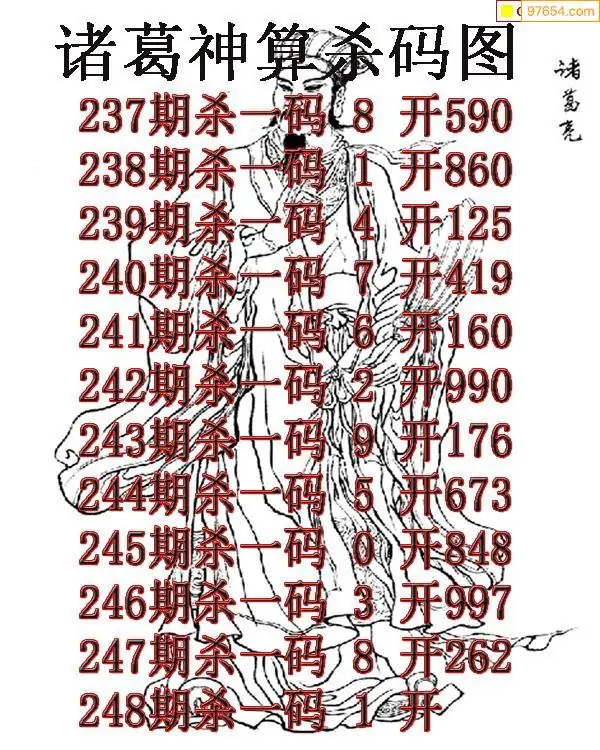 97654.com
诸葛神算杀码图
诸葛亮
237期杀一码 8 开590
238期杀一码 1 开860
239期杀一码 4 开125
240期杀一码 7 开419
241期杀一码 6 开160
242期杀一码 2 开990
243期杀一码 9 开176
244期杀一码 5 开673
245期杀一码 0 开848
246期杀一码 3 开997
247期杀一码 8 开262
248期杀一码 1 开